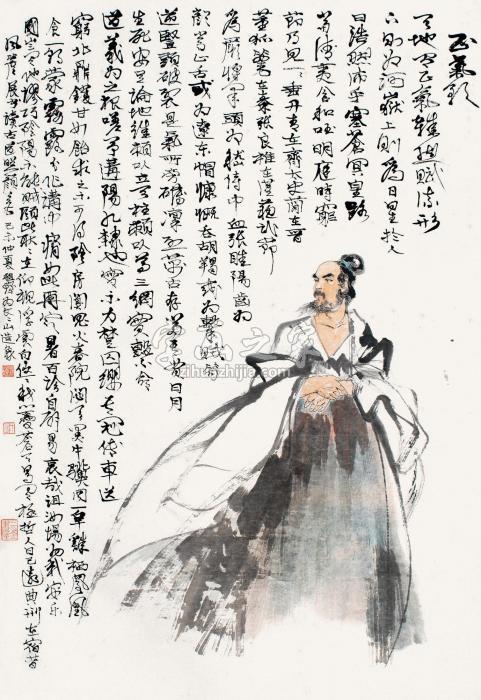 正氣歌
天地有正氣雜然賦流形
下則為河嶽上則為日星於人
曰浩然沛乎塞蒼冥皇路
當清夷含和吐明庭時窮
節乃見一一垂丹青在齊太史簡在晉
董狐筆在秦張良椎在漢蘇武節
為嚴將軍頭為嵇侍中血張睢陽齒為
顏常山舌或為遼東帽慷慨吞胡羯或為擊賊笏
逆豎頭破裂是氣所磅礴凜烈萬古存當其貫日月
生死安足論地維賴以立天柱賴以尊三綱實繫命
道義為之根嗟予遘陽九隸也實不力楚囚纓其冠傳車送
窮北鼎鑊甘如飴求之不可得陰房闃鬼火春院閟天黑牛驥同一皁雞棲鳳凰
食一朝蒙霧露分作溝中瘠如此再寒暑百沴自辟易哀哉沮洳場為我安樂
國豈有他繆巧陰陽不能賊顧此耿耿在仰視浮雲白悠悠我心憂蒼天曷有極哲人日已遠典刑在宿昔
風簷展書讀古道照顏色 己未仲夏 造象
字画之家
zihuazhijia.com